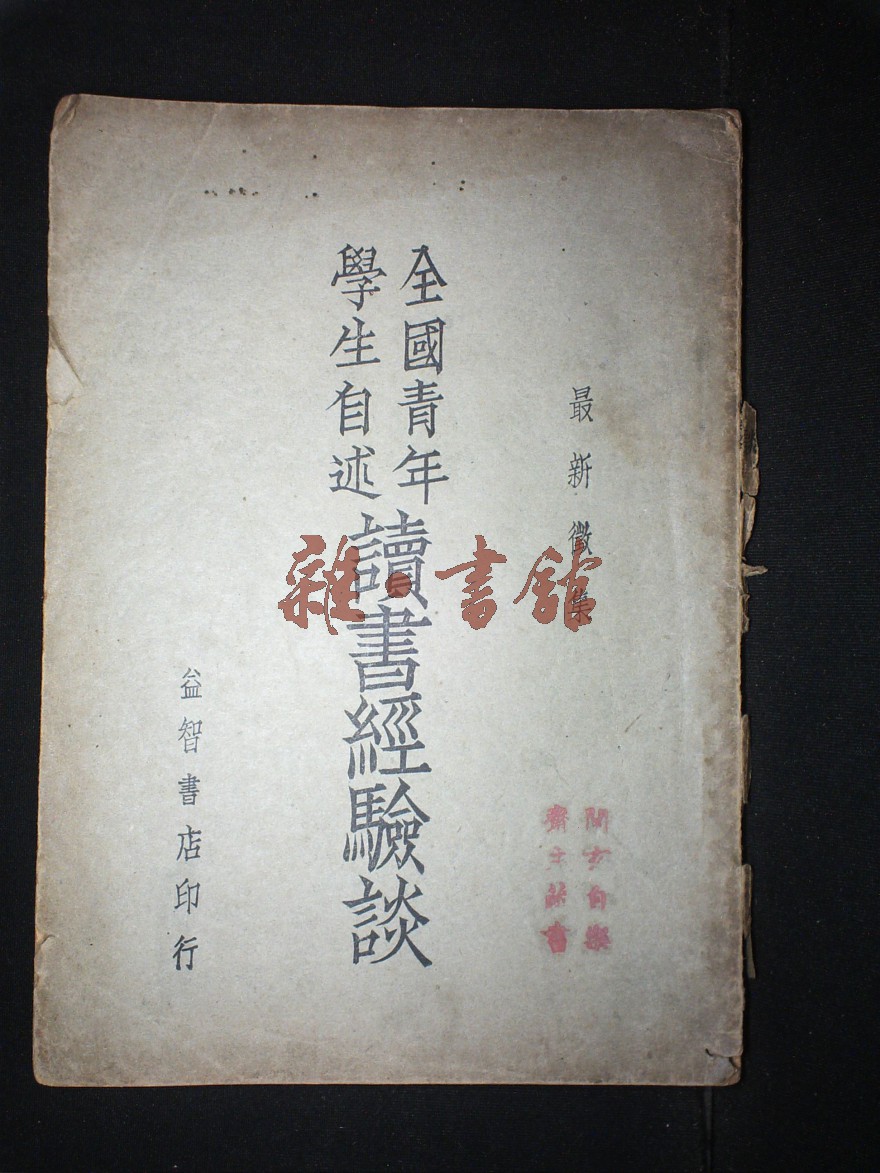 最新徵集
全國青年
學生自述
讀書經驗談
益智書店印行
雜·書館
自樂
齋主藏書